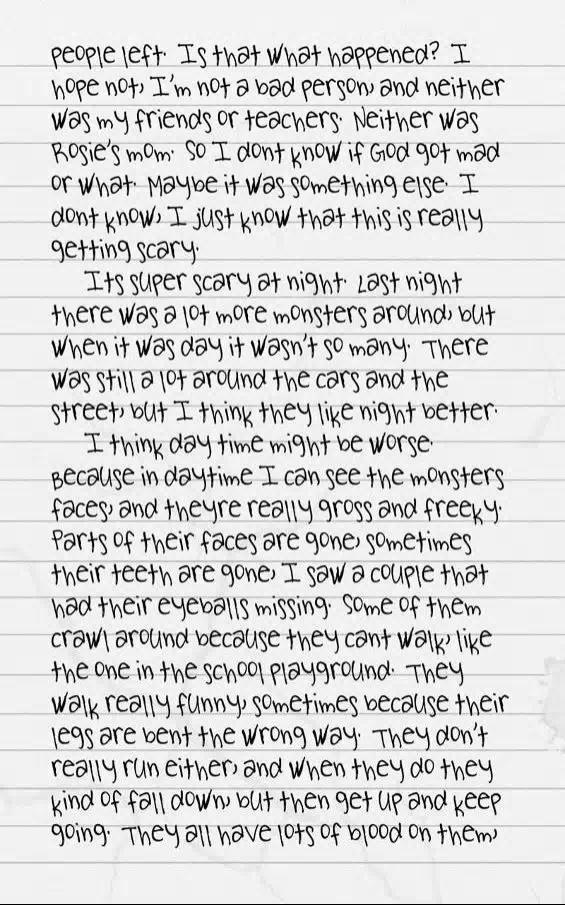 people left. Is that what happened? I
hope not, I'm not a bad person, and neither
was my friends or teachers. Neither was
Rosie's mom. So I dont know if God got mad
or what. Maybe it was something else. I
dont know, I just know that this is really
getting scary.
Its super scary at night. Last night
there was a lot more monsters around, but
when it was day it wasn't so many. There
was still a lot around the cars and the
street, but I think they like night better.
I think day time might be worse.
Because in daytime I can see the monsters
faces, and theyre really gross and freeky.
Parts of their faces are gone, sometimes
their teeth are gone, I saw a couple that
had their eyeballs missing. Some of them
crawl around because they cant walk, like
the one in the school playground. They
walk really funny, sometimes because their
legs are bent the wrong way. They don't
really run either, and when they do they
kind of fall down, but then get up and keep
going. They all have lots of blood on them,